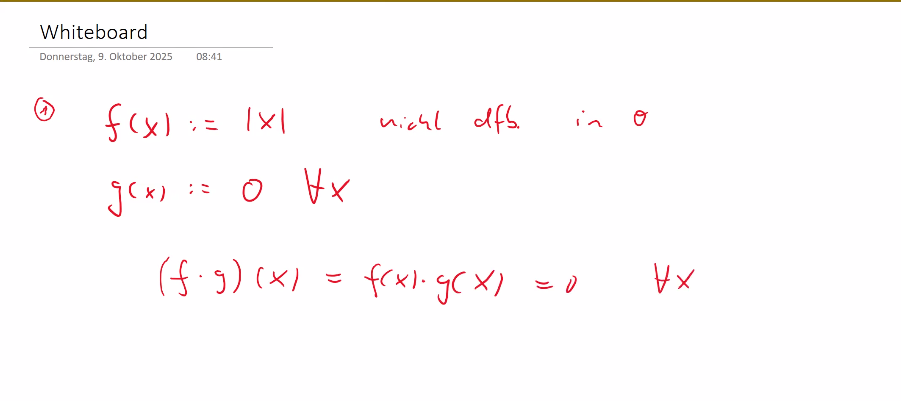 Whiteboard
Donnerstag, 9. Oktober 2025 08:41
① f(x) := |x| nicht dfb. in 0
g(x) := 0 ∀x
(f·g)(x) = f(x)·g(x) = 0 ∀x